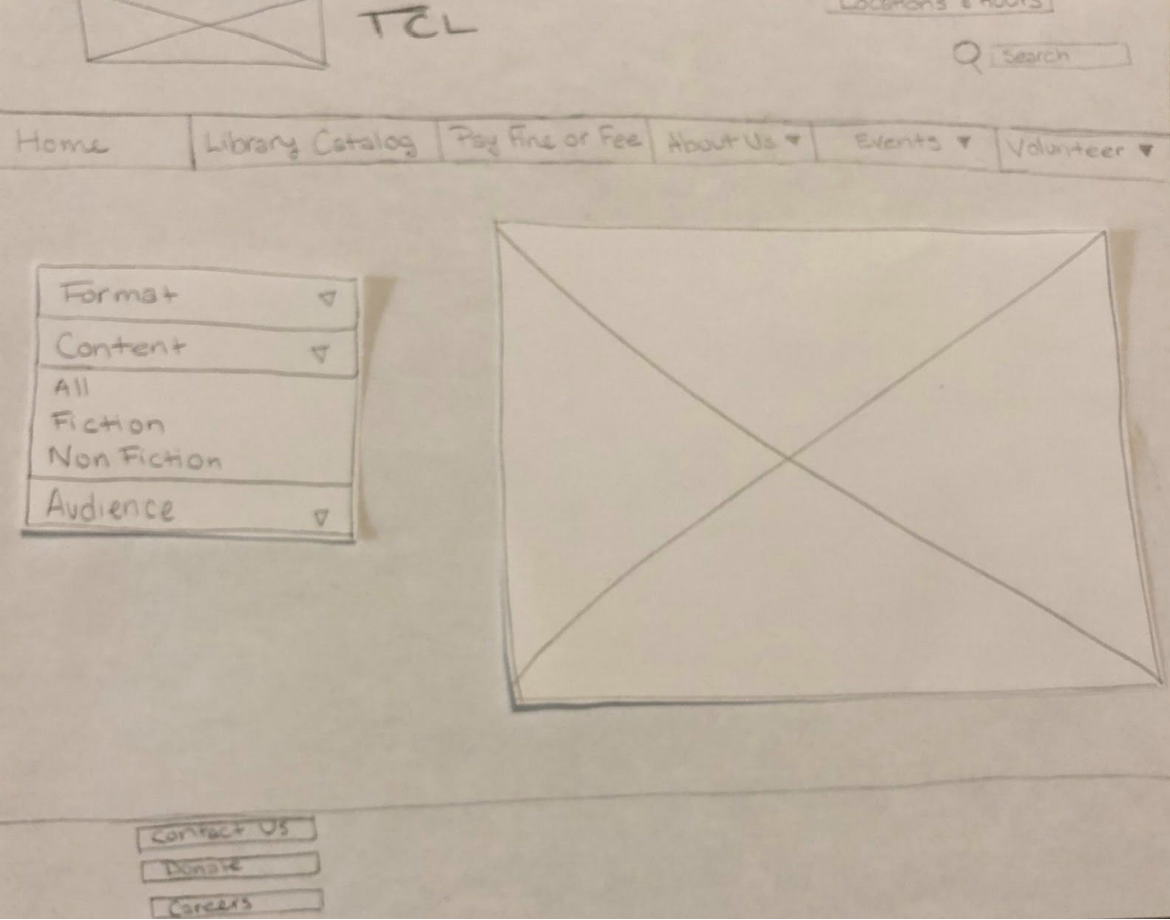 TCL
Locations & Hours
Search
Home
Library Catalog
Pay Fine or Fee
About Us
Events
Volunteer
Format
Content
All
Fiction
Non Fiction
Audience
Contact Us
Donate
Careers